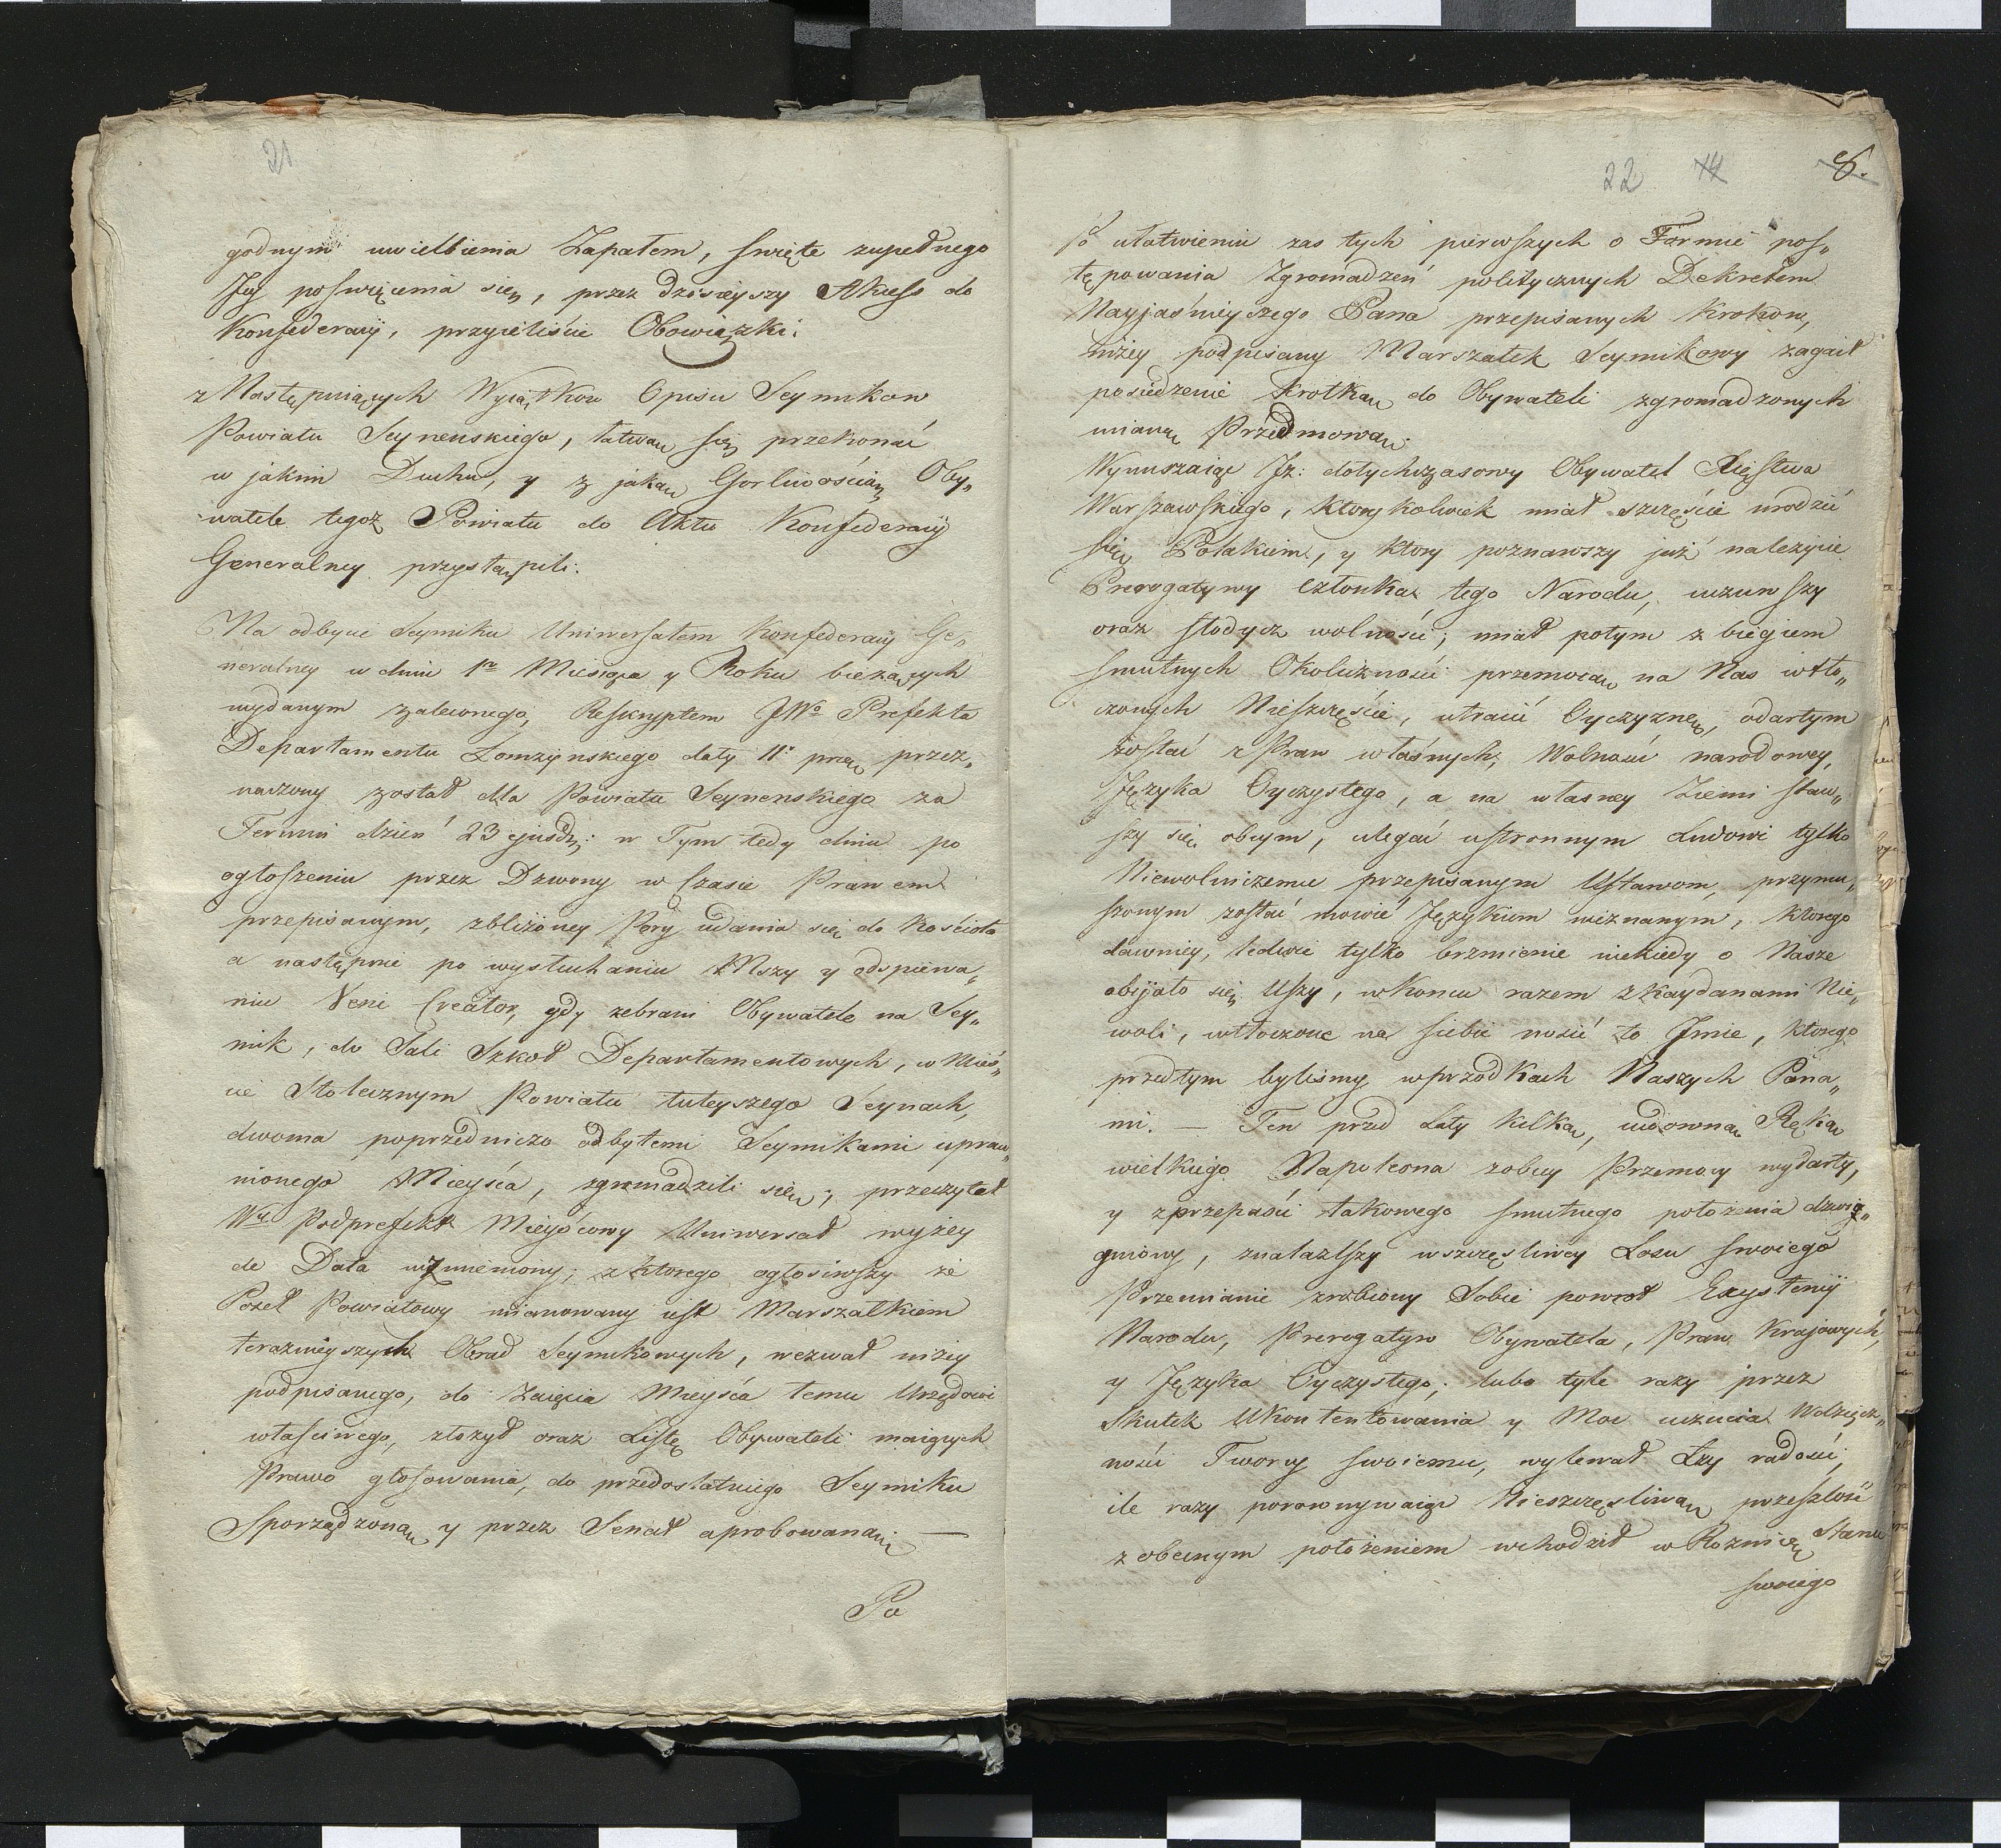 21
godnym uwielbienia Zapałem, święte zupełnego
Jey poswięcenia się, przez dzisieyszy Akces do
Konfederacyi, przyieliście Obowiązki.
z Następuiących Wyiątkow Opisu Seymikow
Powiatu Seynenskiego, łatwo się przekonać
w jakim Duchu, y z jaką Gorliwością Oby„
watele tegoż Powiatu do Aktu Konfederacyi
Generalney przystąpili.
Na odbycie Seymiku Uniwersałem Konfederacyi Ge„
neralney w dniu 1m Miesiąca y Roku bieżących
wydanym zaleconego, Reskryptem JWo Prefekta
Departamentu Łomżynskiego daty 11o przez„
naczony został dla Powiatu Seynenskiego za
Termin dzień 23 ejusdem: w Tym tedy dniu po
ogłoszeniu przez Dzwony w Czasie Prawem
przepisanym, zbliżoney Pory udania się do Kościoła
a następnie po wysłuchaniu Mszy y odspiewa„
niu Veni Creator, gdy zebrani Obywatele na Sey„
mik, do Sali Szkoł Departamentowych, w Mieś„
cie Stołecznym Powiatu tuteyszego Seynach,
dwoma poprzedniczo odbytemi Seymikami upraw„
nionego Mieysca, zgromadzili się; przeczytał
Wy Podprefekt Mieyscowy Uniwersał wyżey
de Data wzmieniony; z ktorego ogłosiwszy że
Poseł Powiatowy mianowany iest Marszałkiem
teraznieyszych Obrad Seymikowych, wezwał niżey
podpisanego, do Zaięcia Mieysca temu Urzędowi
właściwego, złożył oraz Listę Obywateli maiących
Prawo głosowania, do przedostatniego Seymiku
Sporządzoną y przez Senat aprobowaną —
Po
22 14 8.
Po ułatwieniu zas tych pierwszych o Formie pos„
tępowania Zgromadzeń politycznych Dekretem
Nayjaśnieyszego Pana przepisanych Krokow,
niżey podpisany Marszałek Seymikowy zagaił
posiedzenie krotką do Obywateli zgromadzonych
mianą Przedmową.
Wynurzaiąc Iż: dotychczasowy Obywatel Xięstwa
Warszawskiego, ktorykolwiek miał szczęście urodzić
się Polakiem, y ktory poznawszy już należycie
Prerogatywy Członka tego Narodu, uczuwszy
oraz słodycz wolności; miał potym z biegiem
smutnych Okoliczności przemocą na Nas wtło„
czonych Nieszczęście, utracić Oyczyznę, odartym
zostać z Praw własnych, Wolności narodowey,
Języka Oyczystego, a na własney Ziemi staw„
szy się obcym, ulegać ustronnym Ludowi tylko
Niewolniczemu przepisanym Ustawom, przymu„
szonym zostać mowić Językiem nieznanym, ktorego
dawniey, ledwie tylko brzmienie niekiedy o Nasze
obijało się Uszy, w koncu razem z Kaydanami Nie„
woli, wtłoczone na siebie nosić to Imie, ktorego
przedtym byliśmy w przodkach Naszych Pana„
mi. — Ten przed Laty kilką, cudowną Ręką
wielkiego Napoleona z obcey Przemocy wydarty,
y z przepaści takowego smutnego położenia dzwig„
gniony, znalazłszy w szczęśliwey Losu swoiego
Przemianie zrobiony Sobie powrot Exystencyi
Narodu, Prerogatyw Obywatela, Praw Krajowych,
y Języka Oyczystego; lubo tyle razy przez
Skutek Ukontentowania y Moc uczucia Wdzięcz„
ności Tworcy swoiemu, wylewał Łzy radości,
ile razy porownywaiąc Nieszczęśliwą przeszłość
z obecnym położeniem wchodził w Roznicę Stanu
swoiego